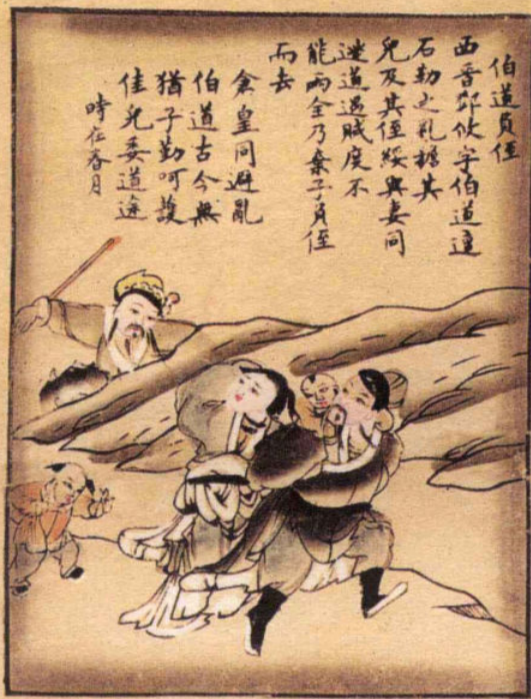 伯道負侄
西晋邓攸字伯道遭
石勒之乱担其
兒及其侄綏與妻同
逃道遇賊度不
能兩全乃棄子負侄
而去
倉皇同避亂
伯道古今無
猶子勤呵護
佳兒委道途
時在春月